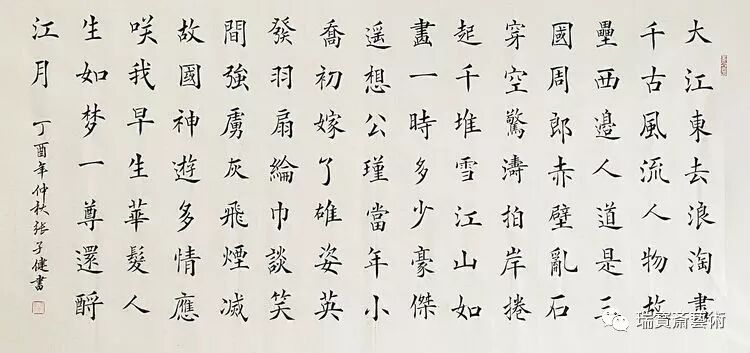 大江東去浪淘盡
千古風流人物故
壘西邊人道是三
國周郎赤壁亂石
穿空驚濤拍岸捲
起千堆雪江山如
畫一時多少豪傑
遥想公瑾當年小
喬初嫁了雄姿英
發羽扇綸巾談笑
間強虜灰飛煙滅
故國神遊多情應
咲我早生華髮人
生如梦一尊還酹
江月
丁酉年仲秋张子健書
瑞寳斋藝術